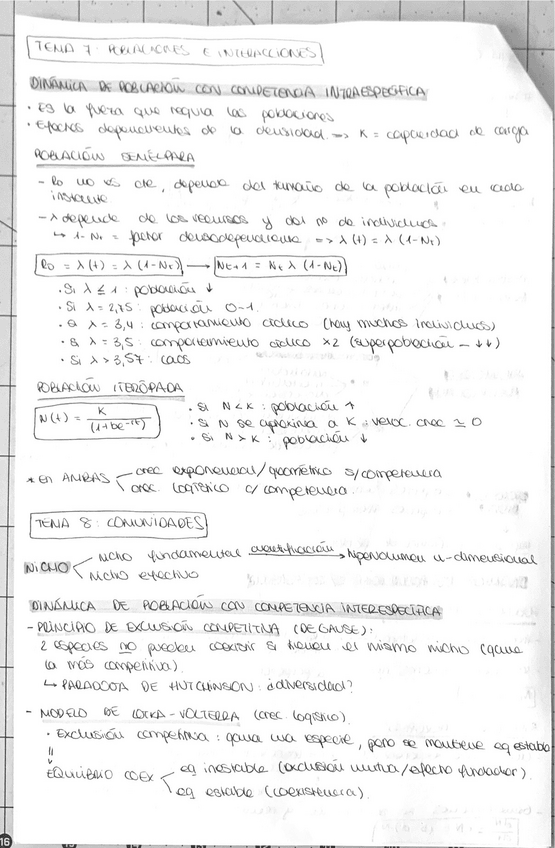 TEMA 7: POBLACIONES E INTERACCIONES
DINÁMICA DE POBLACIÓN CON COMPETENCIA INTRAESPECÍFICA
• Es la fuerza que regula las poblaciones
• Efectos dependientes de la densidad => K = capacidad de carga
POBLACIÓN SEMÉLPARA
- R0 no es cte, depende del tamaño de la población en cada
instante
- λ depende de los recursos y del nº de individuos.
↳ 1-Nt = factor densodependiente => λ(t) = λ(1-Nt)
R0 = λ(t) = λ(1-Nt) → Nt+1 = Nt λ (1-Nt)
• Si λ ≤ 1 : población ↓
• Si λ = 2,75 : población 0-1.
• Si λ = 3,4 : comportamiento cíclico (hay muchos individuos)
• Si λ = 3,5 : comportamiento cíclico x2 (superpoblación - ↓↓)
• Si λ > 3,57 : caos
POBLACIÓN ITERÓPARA
N(t) = K / (1+be^-rt)
• Si N < K : población ↑
• Si N se aproxima a K : veloc. crec ≃ 0
• Si N > K : población ↓
* En AMBAS
crec exponencial/geométrico s/competencia
crec. logístico c/ competencia.
TEMA 8: COMUNIDADES
NICHO
nicho fundamental cuantificación → hipervolumen n-dimensional
nicho efectivo
DINÁMICA DE POBLACIÓN CON COMPETENCIA INTERESPECÍFICA
- PRINCIPIO DE EXCLUSIÓN COMPETITIVA (DE GAUSE):
2 especies no pueden coexistir si tienen el mismo nicho (gana
la más competitiva).
↳ PARADOJA DE HUTCHINSON: ¿diversidad?
- MODELO DE LOTKA-VOLTERRA (crec. logístico).
• Exclusión competitiva: gana una especie, pero se mantiene eq estable
EQUILIBRIO COEX
eq inestable (exclusión mutua/efecto fundador).
eq estable (coexistencia).
16